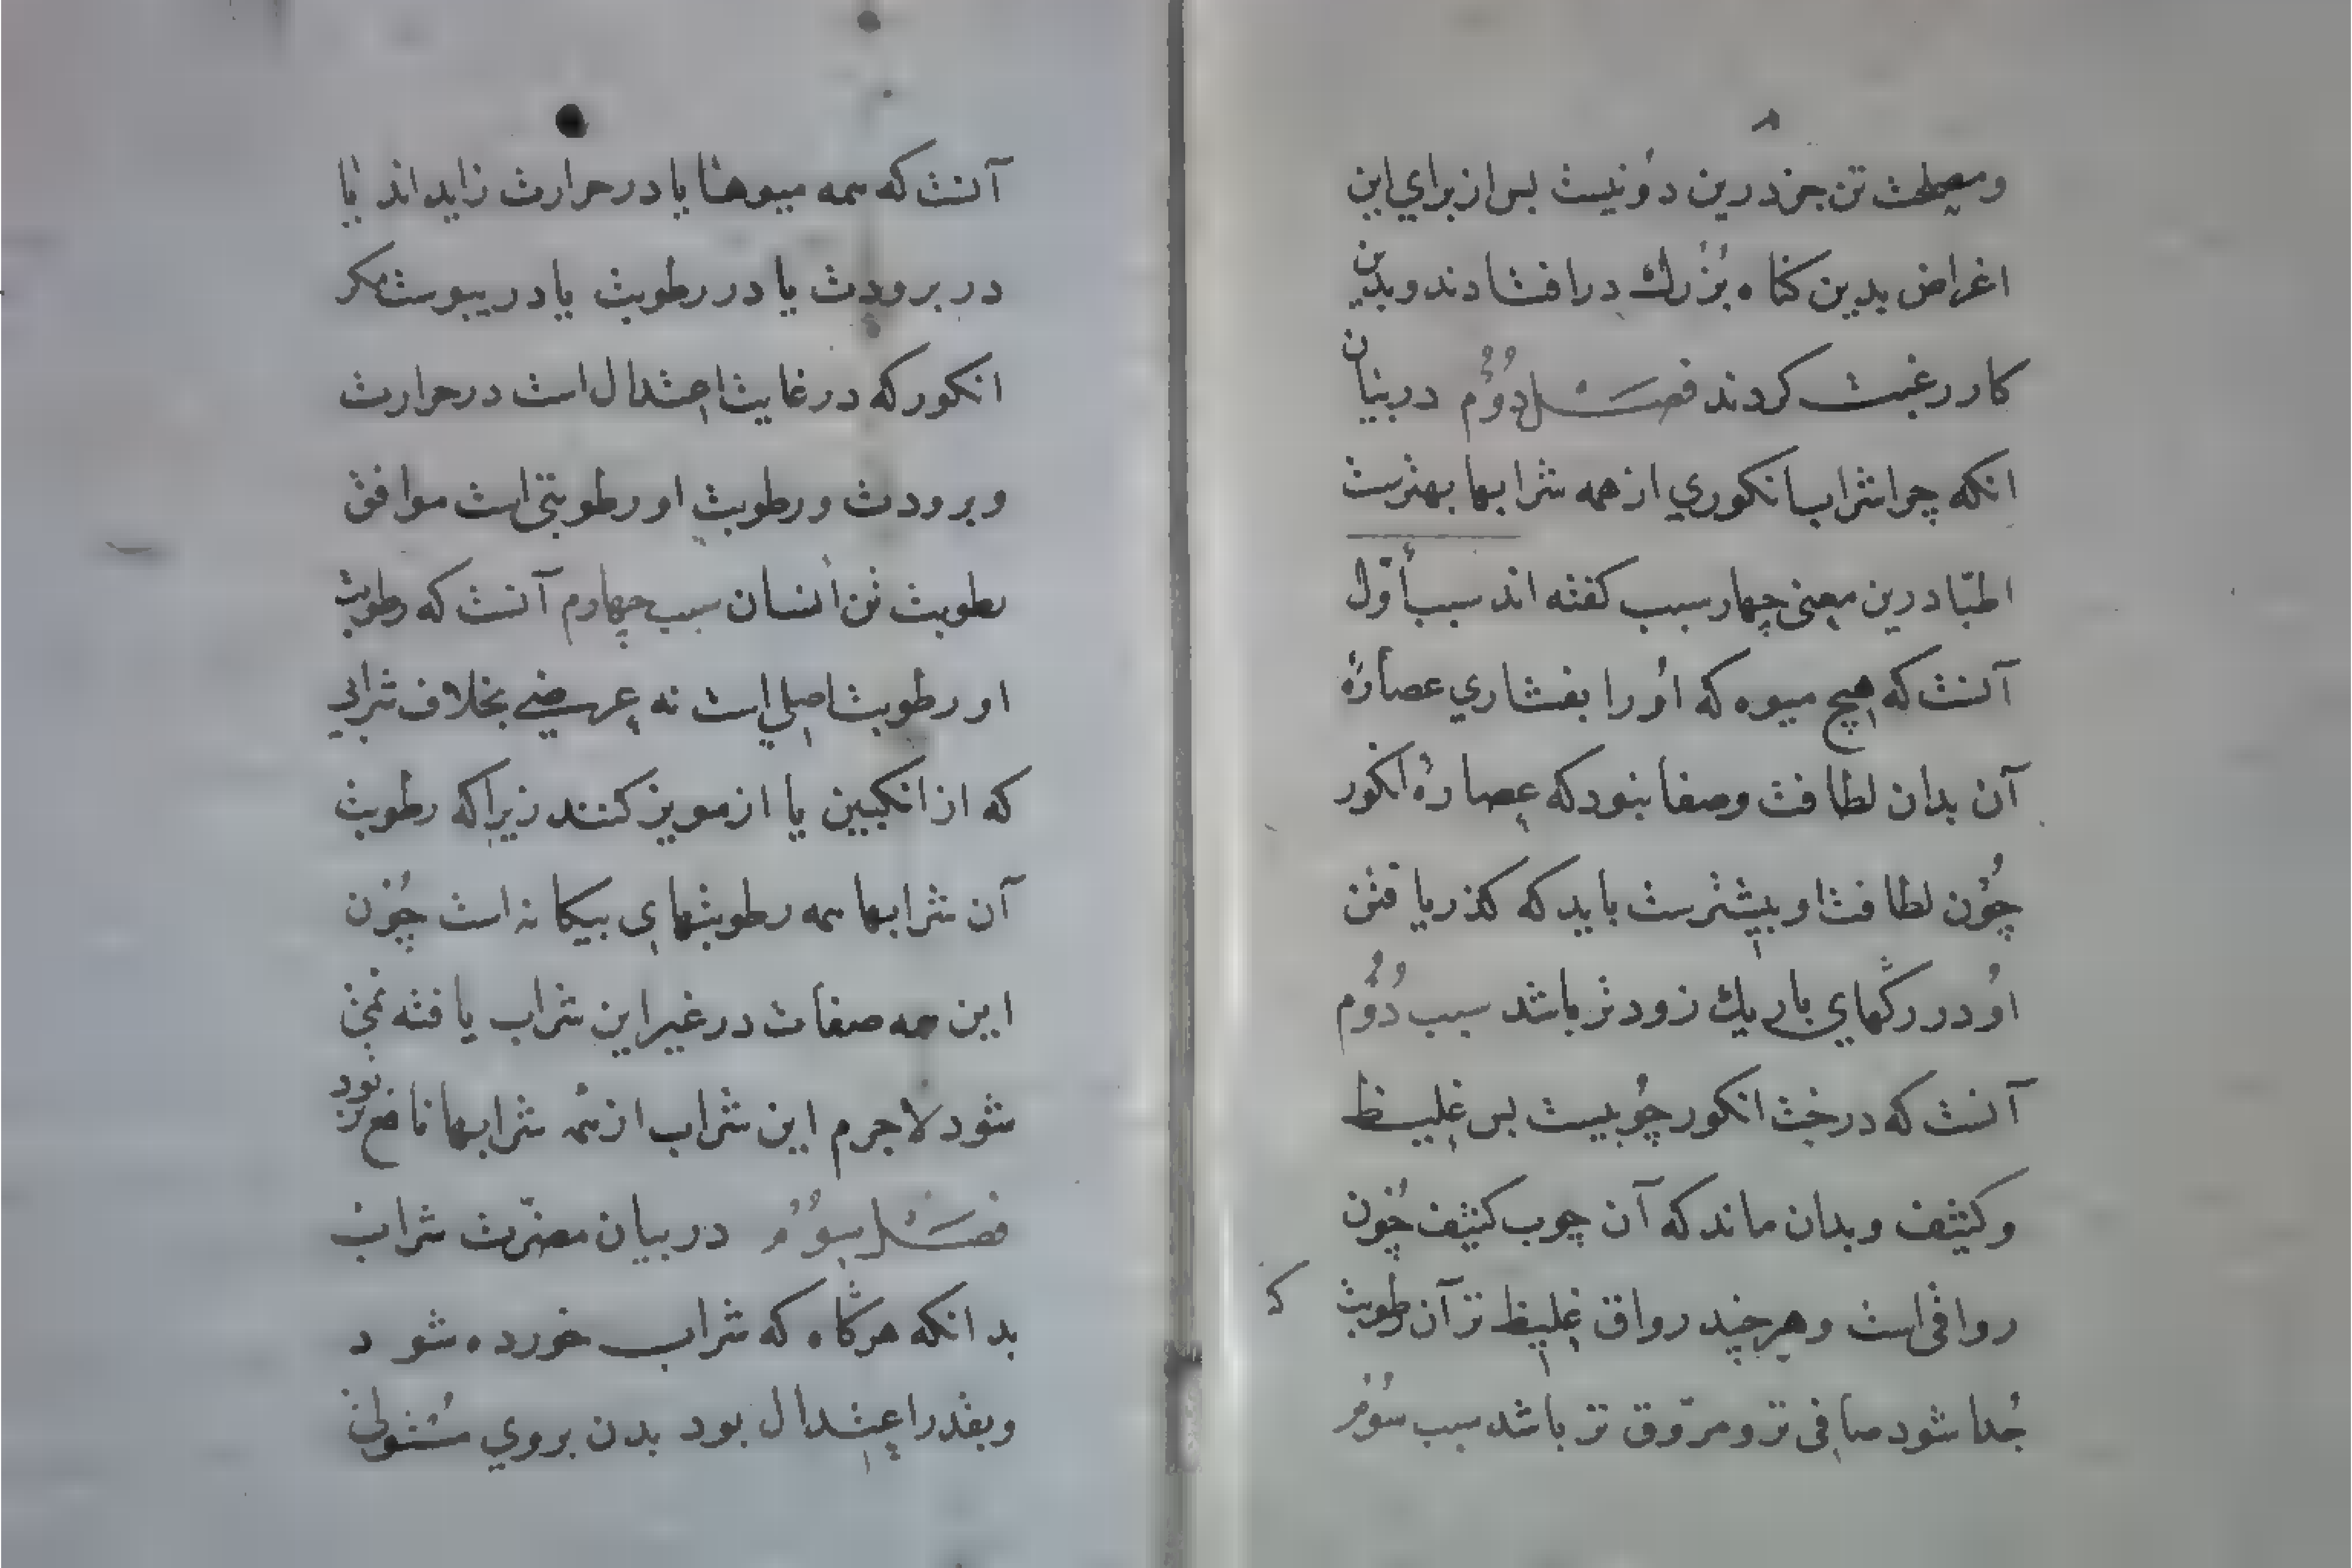 ومصلحت تن جز درین دو نیست بس از برای این
اغراض بدین کناه بزرك درافتادند وبدین
کار رغبت کردند فصل دوم در بیان
انکه چرا شراب انکوری از همه شرابها بهترست
اطبّا درین معنی چهار سبب کفته اند سبب أوّل
آنست که هیچ میوه که اورا بفشاری عصارهٔ
آن بدان لطافت وصفا نبود که عصارهٔ انکور
چون لطافت او بیشترست باید که کذر یافتن
او در رکهای باریك زودتر باشد سبب دوم
آنست که درخت انکور چوبیست بس غلیظ
وکثیف وبدان ماند که آن چوب کثیف چون
رواقی است وهر چند رواق غلیظ تر آن رطوبت که
جدا شود صافی تر ومروّق تر باشد سبب سوم
آنست که همه میوها یا در حرارت زاید اند یا
در برودت یا در رطوبت یا در یبوست مکر
انکور که در غایت اعتدال است در حرارت
وبرودت ورطوبت او رطوبتی است موافق
رطوبت تن انسان سبب چهارم آنست که رطوبت
او رطوبت اصلی است نه عرضی بخلاف شرابی
که از انکبین یا از مویز کنند زیراکه رطوبت
آن شرابها همه رطوبتهای بیکانه است چون
این همه صفات در غیر این شراب یافته نمی
شود لاجرم این شراب از همه شرابها نافع تر بود
فصل سوم در بیان مضرّت شراب
بدانکه هرکاه که شراب خورده شود
وبقدر اعتدال بود بدن بروی مستولی